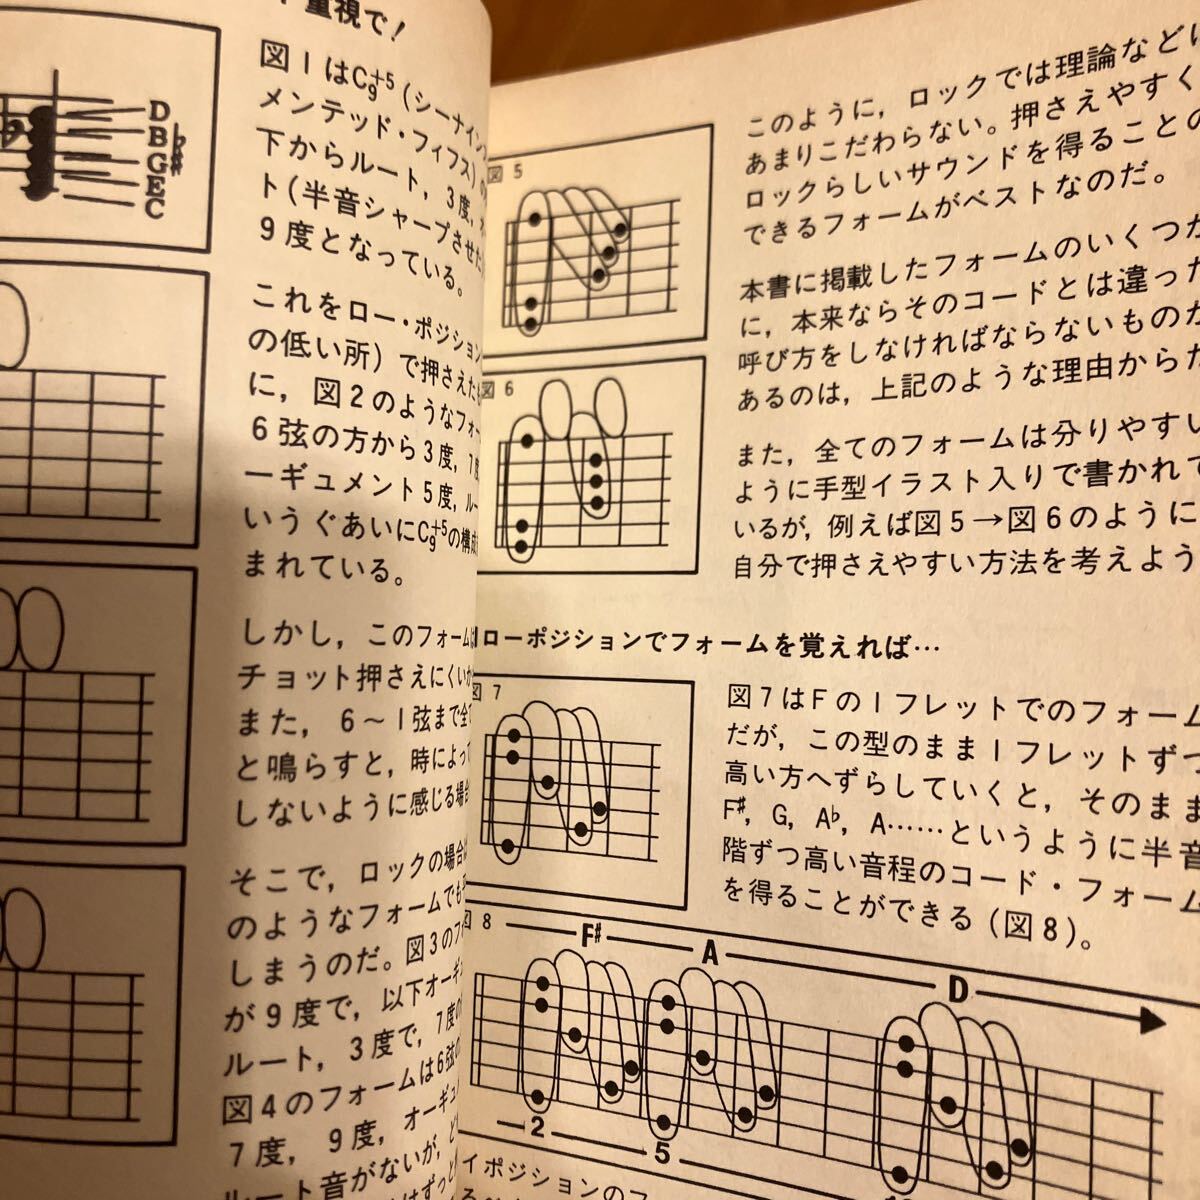 重視で!
D
B♭
G♯
E
C
図1はC+5 9(シーナイン
メンテッド・フィフス)
下からルート，3度，
ト(半音シャープさせた
9度となっている。
これをロー・ポジション
の低い所)で押さえた
に，図2のようなフォー
6弦の方から3度，7度
ーギュメント5度，ルー
いうぐあいにC+5 9の構成
まれている。
しかし，このフォームは
チョット押さえにくいか
また，6～1弦まで全て
と鳴らすと，時によって
しないように感じる場合
そこで，ロックの場合は
のようなフォームでも
しまうのだ。図3のフォ
が9度で，以下オーギュ
ルート，3度で，7度の
図4のフォームは6弦の
7度，9度，オーギュ
ルート音がないが，
はずっと
図5
図6
このように，ロックでは理論などに
あまりこだわらない。押さえやすく
ロックらしいサウンドを得ることの
できるフォームがベストなのだ。
本書に掲載したフォームのいくつか
に，本来ならそのコードとは違った
呼び方をしなければならないものが
あるのは，上記のような理由からだ
また，全てのフォームは分りやすい
ように手型イラスト入りで書かれて
いるが，例えば図5→図6のように
自分で押さえやすい方法を考えよう
ローポジションでフォームを覚えれば…
図7
図7はFの1フレットでのフォーム
だが，この型のまま1フレットずつ
高い方へずらしていくと，そのまま
F♯，G，A♭，A……というように半音
階ずつ高い音程のコード・フォーム
を得ることができる(図8)。
図8
F♯
A
D
2
5
イポジションのフ